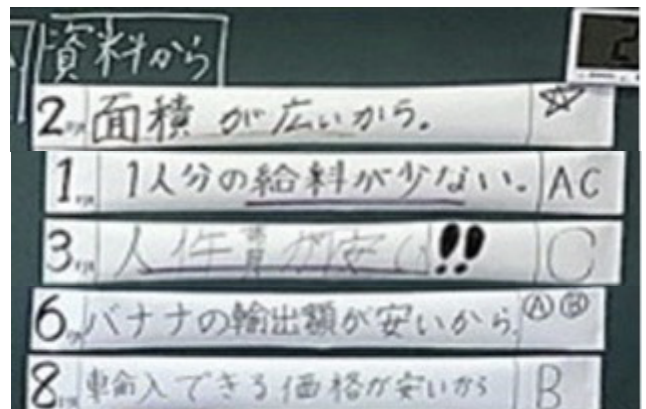 資料から
2 面積が広いから。 ☆
1 1人分の給料が少ない。 AC
3 人件費が安い!! C
6 バナナの輸出額が安いから。 Ⓐ Ⓑ
8 輸入できる価格が安いから B